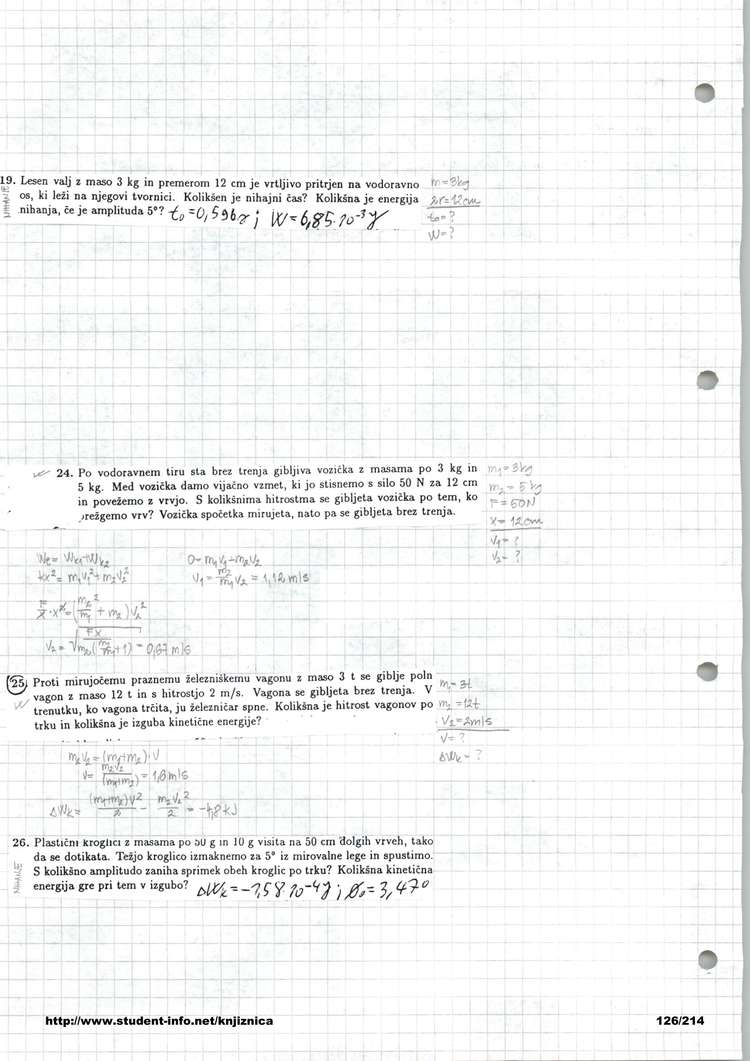 19. Lesen valj z maso 3 kg in premerom 12 cm je vrtljivo pritrjen na vodoravno
os, ki leži na njegovi tvornici. Kolikšen je nihajni čas? Kolikšna je energija
nihanja, če je amplituda 5°? t₀=0,596s; W=6,85·10⁻³J
m=3kg
2r=12cm
t₀=?
W=?
24. Po vodoravnem tiru sta brez trenja gibljiva vozička z masama po 3 kg in
5 kg. Med vozička damo vijačno vzmet, ki jo stisnemo s silo 50 N za 12 cm
in povežemo z vrvjo. S kolikšnima hitrostma se gibljeta vozička po tem, ko
režgemo vrv? Vozička spočetka mirujeta, nato pa se gibljeta brez trenja.
m₁=3kg
m₂=5kg
F=50N
x=12cm
v₁=?
v₂=?
We=Wk1+Wk2
kx²=m₁v₁²+m₂v₂²
F/x·x²=(m₂²/m₁+m₂)v₂²
v₂=√(Fx/(m₂(m₂/m₁+1)))=0,67m/s
0=m₁v₁-m₂v₂
v₁=m₂/m₁v₂=1,12m/s
25. Proti mirujočemu praznemu železniškemu vagonu z maso 3 t se giblje poln
vagon z maso 12 t in s hitrostjo 2 m/s. Vagona se gibljeta brez trenja. V
trenutku, ko vagona trčita, ju železničar spne. Kolikšna je hitrost vagonov po
trku in kolikšna je izguba kinetične energije?
m₁=3t
m₂=12t
v₂=2m/s
v=?
ΔWk=?
m₂v₂=(m₁+m₂)·v
v=m₂v₂/(m₁+m₂)=1,6m/s
ΔWk=(m₁+m₂)v²/2-m₂v₂²/2=-4,8kJ
26. Plastični kroglici z masama po 50 g in 10 g visita na 50 cm dolgih vrveh, tako
da se dotikata. Težjo kroglico izmaknemo za 5° iz mirovalne lege in spustimo.
S kolikšno amplitudo zaniha sprimek obeh kroglic po trku? Kolikšna kinetična
energija gre pri tem v izgubo? ΔWk=-1,58·10⁻⁴J; φ₀=3,47°
NIHANJE
http://www.student-info.net/knjiznica
126/214